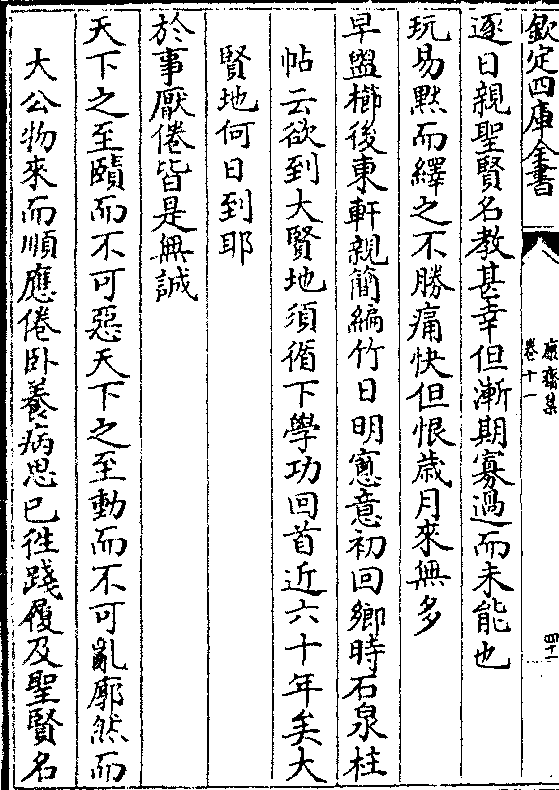 欽定四庫全書
康齋集
卷十一
四十一
逐日親聖賢名教甚幸但漸期寡過而未能也
玩易黙而繹之不勝痛快但恨歳月來無多
早盥櫛後東軒親簡編竹日明窻意初回鄉時石泉柱
帖云欲到大賢地須循下學功回首近六十年矣大
賢地何日到耶
於事厭倦皆是無誠
天下之至賾而不可惡天下之至動而不可亂廓然而
大公物來而順應倦卧養病思已徃踐履及聖賢名